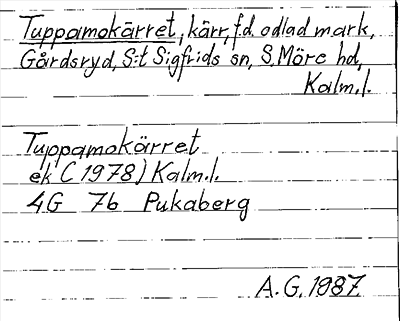 Tuppamokärret, kärr, f.d. odlad mark,
Gårdsryd, S:t Sigfrids sn, S. Möre hd,
Kalm.l.
Tuppamokärret
ek (1978) Kalm.l.
4G 7b Pukaberg
A.G. 1987